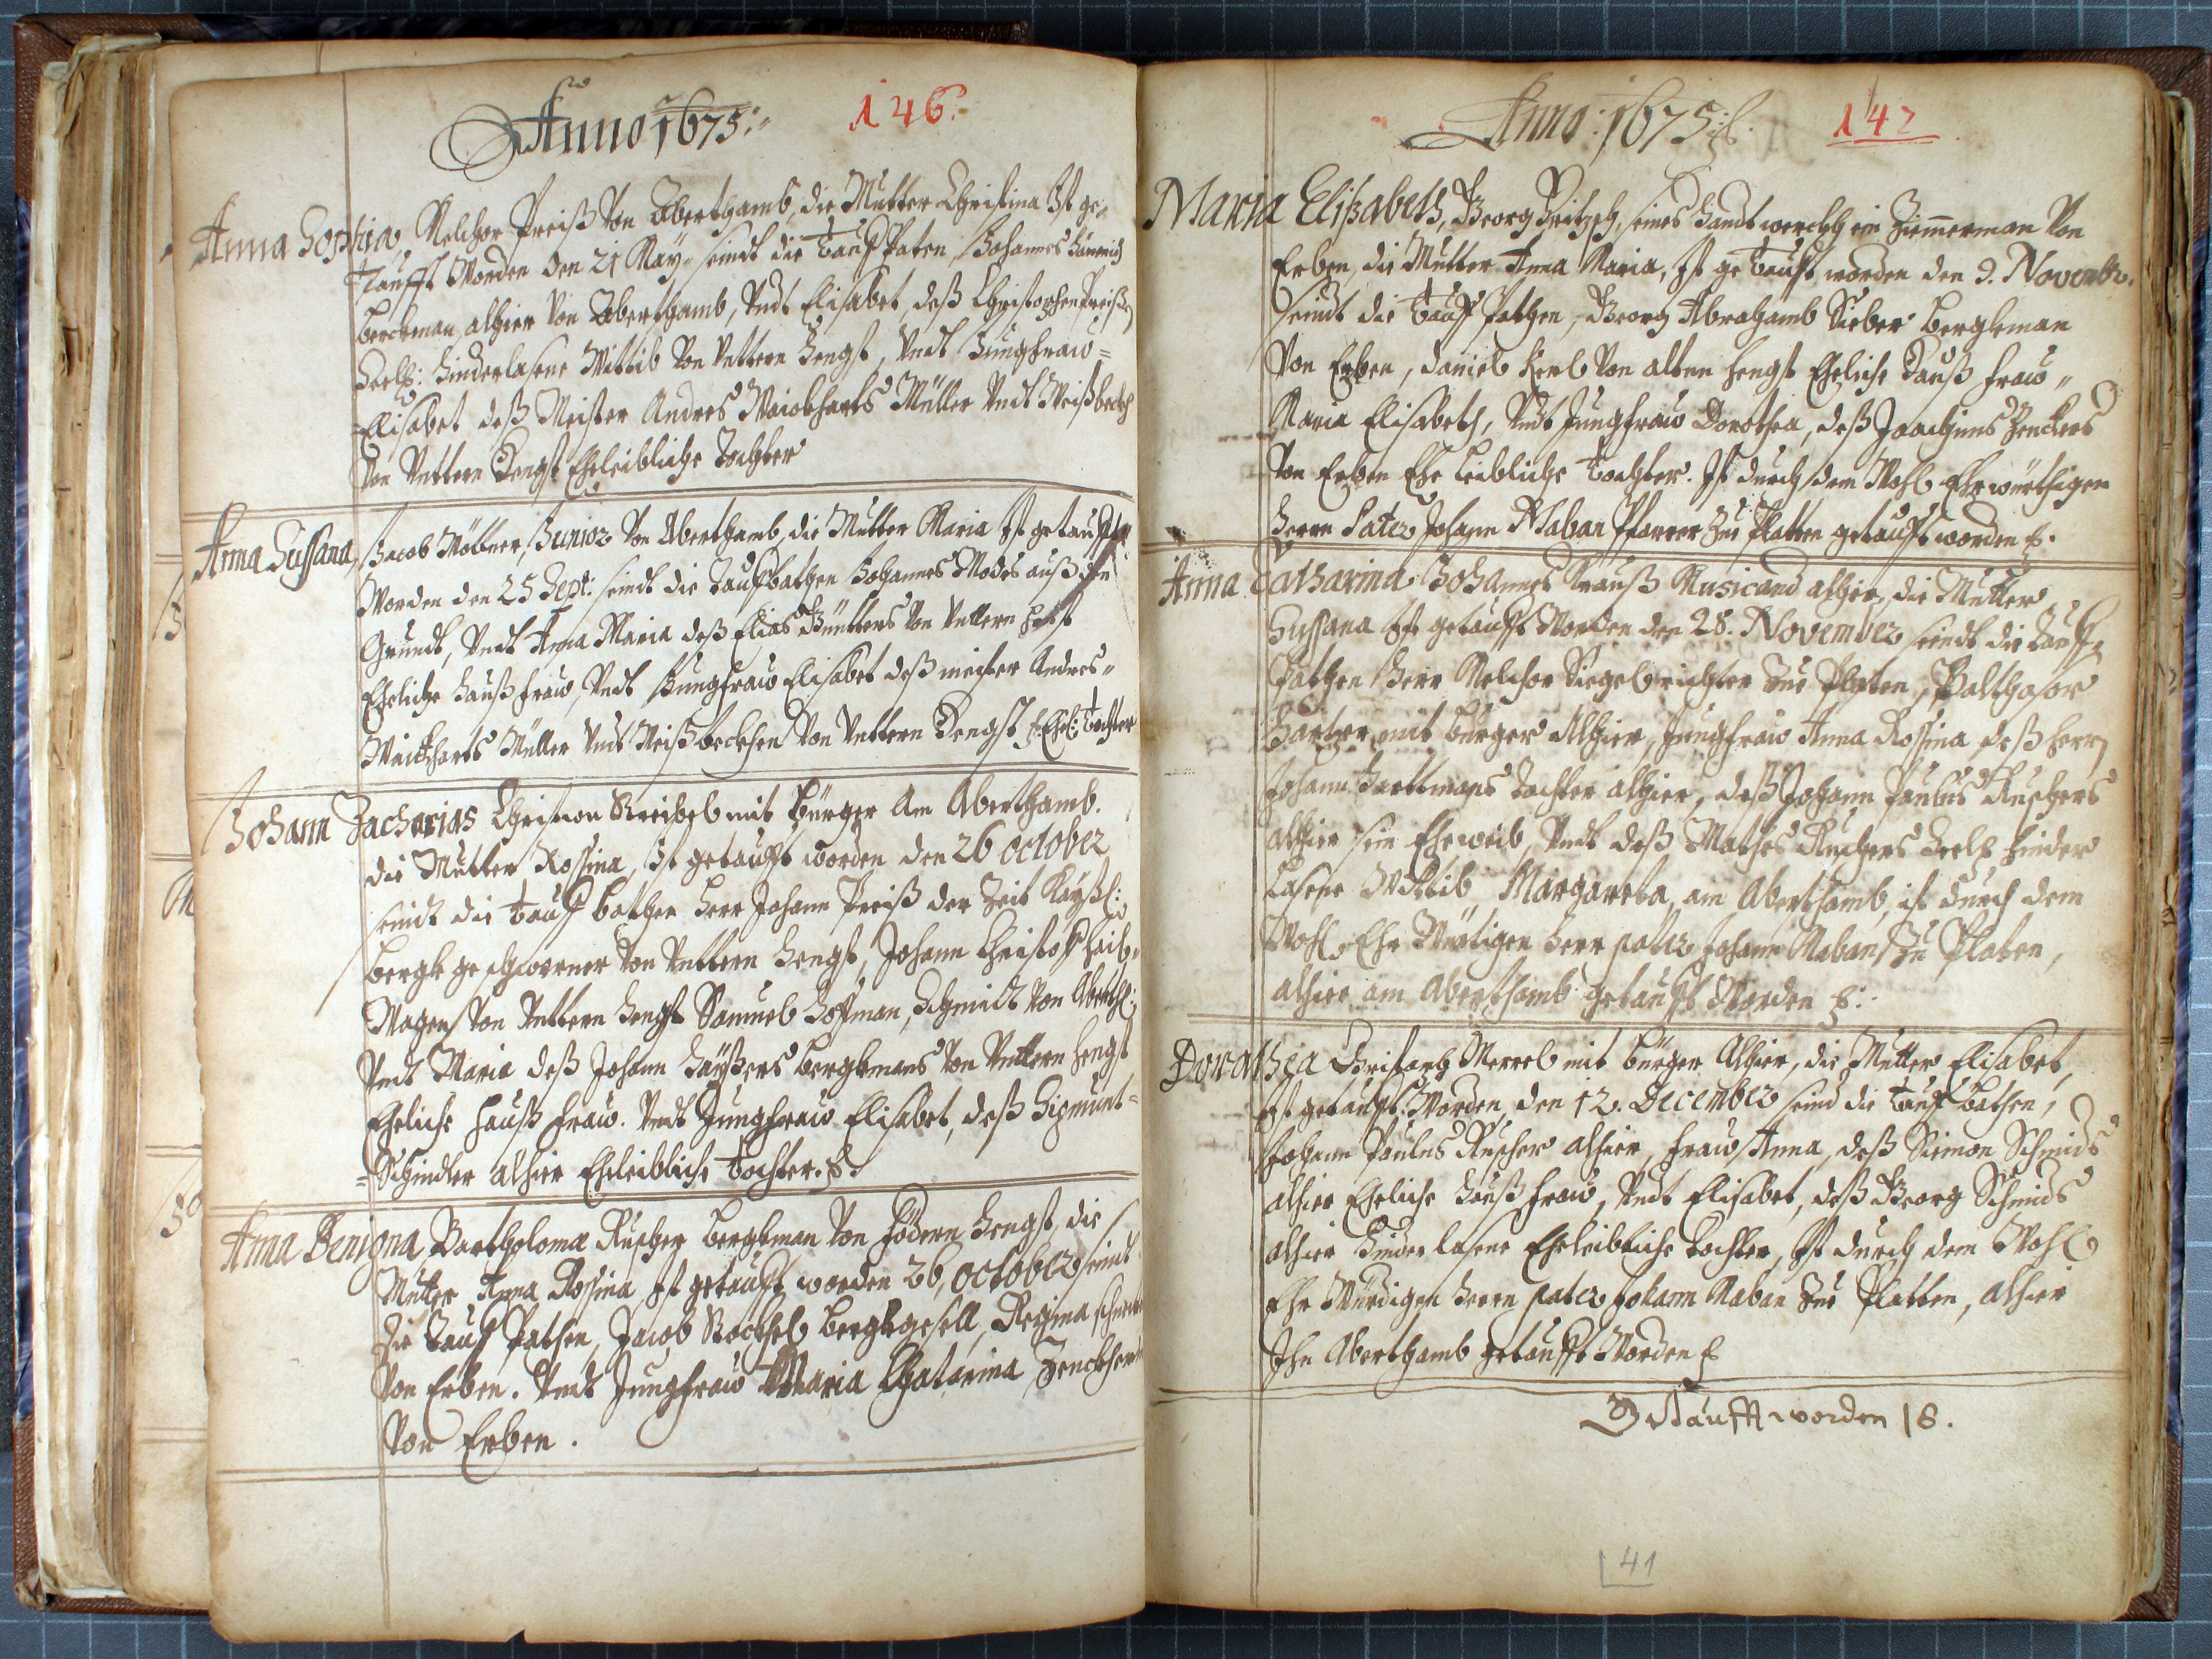 Anno 1675
146.
Anna Sophia, Melchor Preiß Von Aberthamb, die Mutter Christina Ist ge-
taufft Worden den 21 May seindt die Tauff Paten, Johannes
berckman alhier Von Aberthamb, Undt Elisabet, deß Christophen Preißen
Seel: hinderlasene Wittib Von Vettern Hengst, Undt Jungfraw
Elisabet deß Meister Andres Müller Undt Weißbeck
Von Vettern Hengst Eheleibliche Tochter
Anna Susana, Jacob Junior Von Aberthamb, die Mutter Maria Ist getaufft
Worden den 25 Sept: seindt die Taufbathen Johannes Modes auß den
Grundt, Undt Anna Maria deß Elias Günthers Von Vettern Hengst
Eheliche haußfraw, Undt Jungfraw Elisabet deß meister Andres
Müller Undt Weißbecken Von Vettern Hengst Ehel: Tochter
Johann Zacharias Christian mit Bürger Am Aberthamb.
die Mutter Rossina, Ist getaufft worden den 26 October
seindt die tauff bathen Herr Johann Preiß der Zeit Kayßl:
bergk geschworner Von Vettern Hengst, Johann Christoff
Wagen Von Vettern Hengst Samuel Hoffman, Schmidt Von Aberth:
Undt Maria deß Johann bergkmans Von Vettern Hengst
Eheliche Hauß fraw. Undt Jungfraw Elisabet, deß Sigmunt
Schindler alhier Eheleibliche tochter.
Anna Benigna Bartholomæ Ruscher bergkman Von Födern Hengst, die
Mutter Anna Rossina Ist getaufft worden 26, October seindt
die Tauff Pathen, Jacob Stöckhel bergkgesell, Regina
Von Erben. Undt Jungfraw Maria Chatarina
Von Erben.
Anno: 1675
147
Maria Elisabeth, Georg seines Handtwercks ein Zimmerman Von
Erben, die Mutter Anna Maria, Ist getaufft worden den 9. Novembr.
seindt die tauff Pathen, Georg Abrahamb Sieber bergkman
Von Erben, Daniel Kerl Von alten Hengst Eheliche Hauß fraw
Maria Elisabeth, Undt Jungfraw Dorothea, deß Joachims Zenckers
Von Erben Ehe Leibliche Tochter. Ist durch dem Wohl Ehrwürthigen
Herrn Pater Johann Maban Pfarrer Zu Platten getaufft worden
Anna Catharina Johannes Krauß Musicand alhier, die Mutter
Susana Ist getaufft Worden den 28. November seindt die Tauff
Pathen Herr Melchor Siegel richter Zue Platen, Balthasar
Harter mit bürger Alhier, Jungfraw Anna Rossina deß Herrn
Johann Hartmans Tochter alhier, deß Johann Paulus Ruschers
alhier sein Eheweib, Undt deß Mathes Ruschers Seel: hinder
Lasene Wittib Margareta, am Aberthamb, ist durch dem
Wohl Ehr Würtigen Herr pater Johann Maban Zu Platen,
alhier am Aberthamb getaufft Worden
Dorathea Christoph Merrel mit bürger Alhier, die Mutter Elisabet,
Ist getaufft Worden den 12. December seind die tauf bathen,
Johann Paulus Ruscher alhier, fraw Anna, deß Simon Schmids
alhier Eheliche hauß fraw, Undt Elisabet, deß Georg Schmids
alhier hinderlasene Eheleibliche Tochter, Ist durch dem Wohl
Ehr Würdigen Herrn pater Johann Maban Zue Platten, alhier
Ihn Aberthamb getaufft Worden
Getaufft worden 18.
41